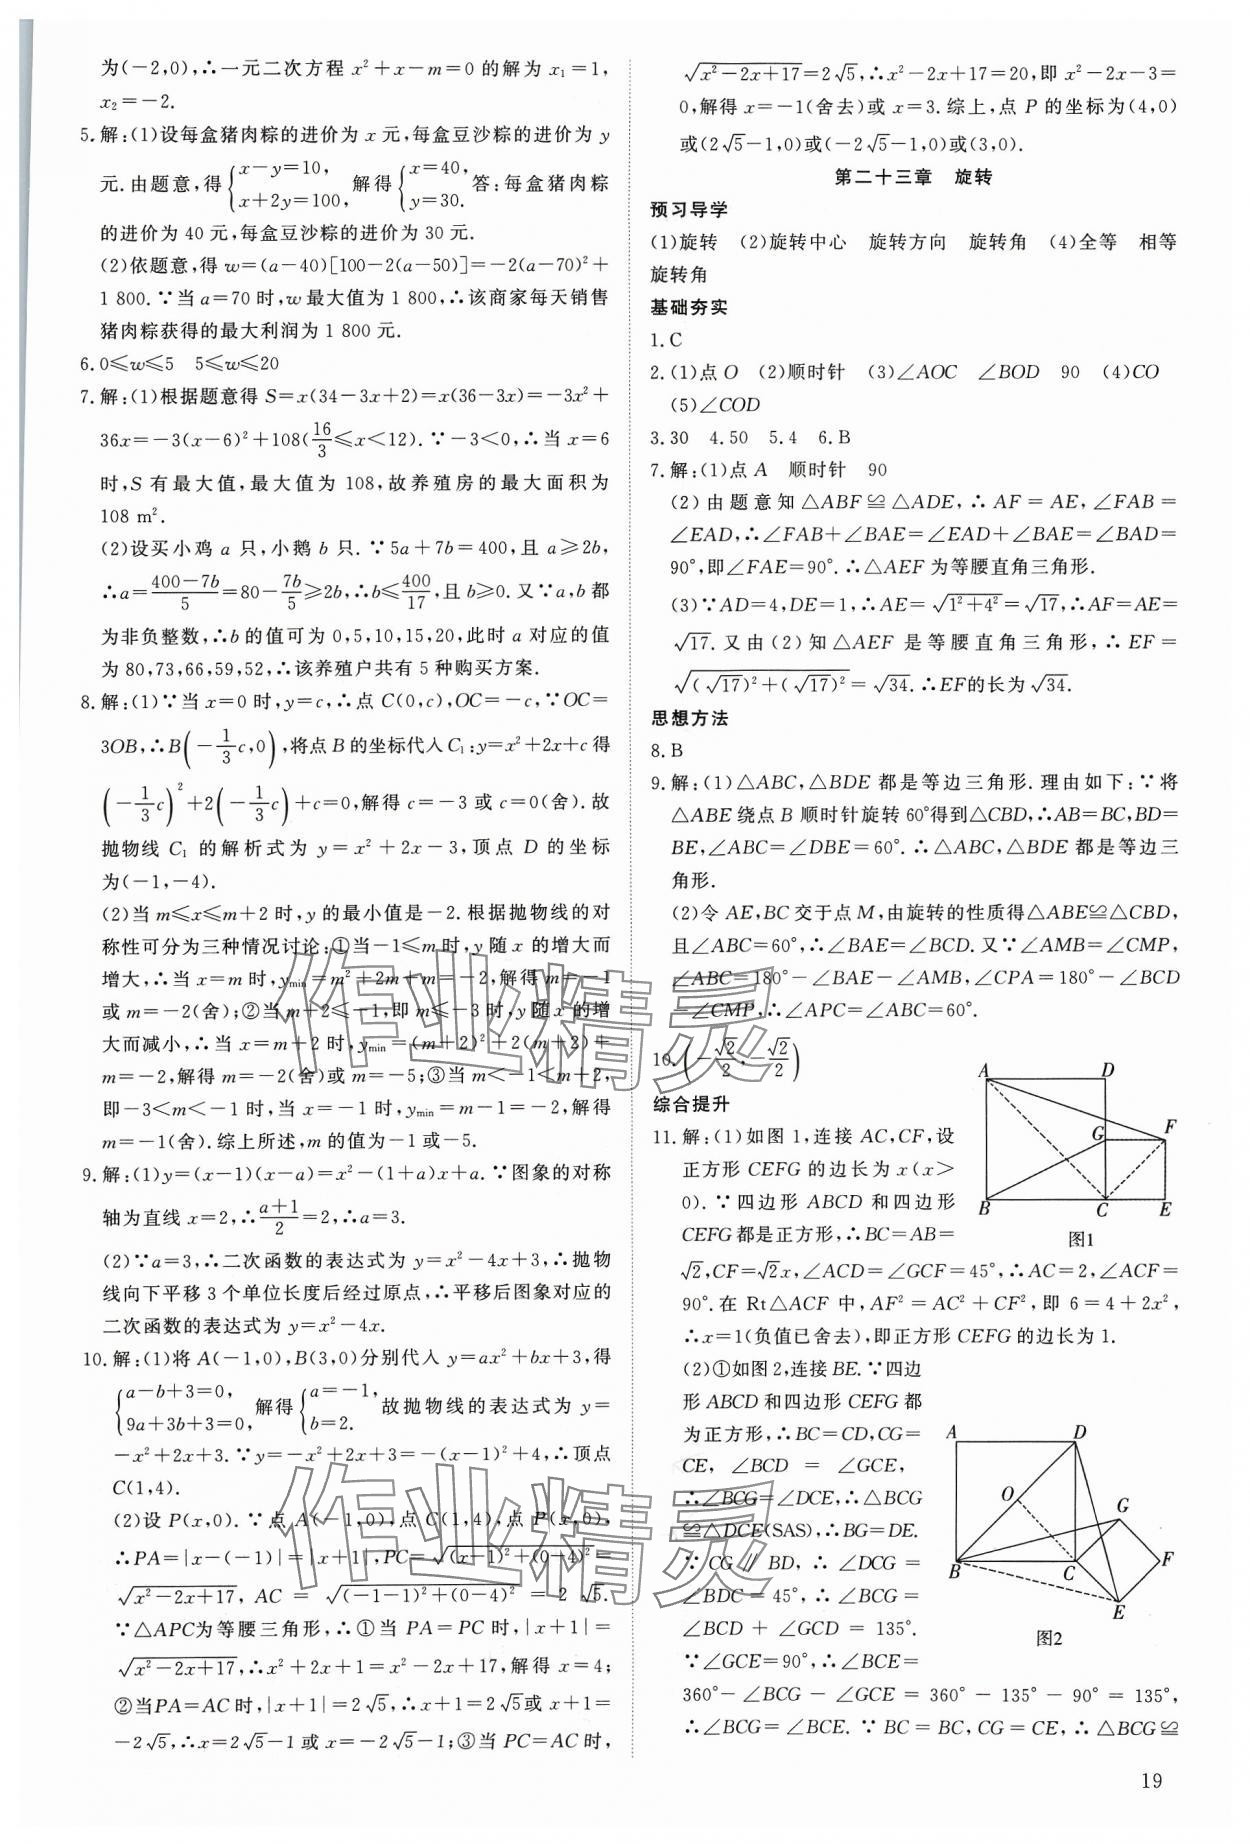 为(－2,0),∴一元二次方程 x²＋x－m＝0 的解为 x₁＝1,
x₂＝－2.
5.解:(1)设每盒猪肉粽的进价为 x 元,每盒豆沙粽的进价为 y
元.由题意,得{x－y＝10, x＋2y＝100, 解得{x＝40, y＝30. 答:每盒猪肉粽
的进价为 40 元,每盒豆沙粽的进价为 30 元.
(2)依题意,得 w＝(a－40)[100－2(a－50)]＝－2(a－70)²＋
1 800.∵当 a＝70 时,w 最大值为 1 800,∴该商家每天销售
猪肉粽获得的最大利润为 1 800 元.
6.0≤w≤5　5≤w≤20
7.解:(1)根据题意得 S＝x(34－3x＋2)＝x(36－3x)＝－3x²＋
36x＝－3(x－6)²＋108(16/3≤x＜12).∵－3＜0,∴当 x＝6
时,S 有最大值,最大值为 108,故养殖房的最大面积为
108 m².
(2)设买小鸡 a 只,小鹅 b 只.∵5a＋7b＝400,且 a≥2b,
∴a＝(400－7b)/5＝80－7b/5≥2b,∴b≤400/17,且 b≥0.又∵a,b 都
为非负整数,∴b 的值可为 0,5,10,15,20,此时 a 对应的值
为 80,73,66,59,52,∴该养殖户共有 5 种购买方案.
8.解:(1)∵当 x＝0 时,y＝c,∴点 C(0,c),OC＝－c,∵OC＝
3OB,∴B(－1/3c,0),将点 B 的坐标代入 C₁:y＝x²＋2x＋c 得
(－1/3c)²＋2(－1/3c)＋c＝0,解得 c＝－3 或 c＝0(舍).故
抛物线 C₁ 的解析式为 y＝x²＋2x－3,顶点 D 的坐标
为(－1,－4).
(2)当 m≤x≤m＋2 时,y 的最小值是－2.根据抛物线的对
称性可分为三种情况讨论:①当－1≤m 时,y 随 x 的增大而
增大,∴当 x＝m 时,yₘᵢₙ＝m²＋2m＋m＝－2,解得 m＝－1
或 m＝－2(舍);②当 m＋2≤－1,即 m≤－3 时,y 随 x 的增
大而减小,∴当 x＝m＋2 时,yₘᵢₙ＝(m＋2)²＋2(m＋2)＋
m＝－2,解得 m＝－2(舍)或 m＝－5;③当 m＜－1＜m＋2,
即－3＜m＜－1 时,当 x＝－1 时,yₘᵢₙ＝m－1＝－2,解得
m＝－1(舍).综上所述,m 的值为－1 或－5.
9.解:(1)y＝(x－1)(x－a)＝x²－(1＋a)x＋a.∵图象的对称
轴为直线 x＝2,∴(a＋1)/2＝2,∴a＝3.
(2)∵a＝3,∴二次函数的表达式为 y＝x²－4x＋3,∴抛物
线向下平移 3 个单位长度后经过原点,∴平移后图象对应的
二次函数的表达式为 y＝x²－4x.
10.解:(1)将 A(－1,0),B(3,0)分别代入 y＝ax²＋bx＋3,得
{a－b＋3＝0, 9a＋3b＋3＝0, 解得{a＝－1, b＝2. 故抛物线的表达式为 y＝
－x²＋2x＋3.∵y＝－x²＋2x＋3＝－(x－1)²＋4,∴顶点
C(1,4).
(2)设 P(x,0).∵点 A(－1,0),点 C(1,4),点 P(x,0),
∴PA＝|x－(－1)|＝|x＋1|,PC＝√((x－1)²＋(0－4)²)＝
√(x²－2x＋17), AC ＝ √((－1－1)²＋(0－4)²) ＝ 2 √5.
∵△APC为等腰三角形,∴①当 PA＝PC 时,|x＋1|＝
√(x²－2x＋17),∴x²＋2x＋1＝x²－2x＋17,解得 x＝4;
②当PA＝AC 时,|x＋1|＝2√5,∴x＋1＝2√5或 x＋1＝
－2√5,∴x＝2√5－1或 x＝－2√5－1;③当 PC＝AC 时,
√(x²－2x＋17)＝2√5,∴x²－2x＋17＝20,即 x²－2x－3＝
0,解得 x＝－1(舍去)或 x＝3.综上,点 P 的坐标为(4,0)
或(2√5－1,0)或(－2√5－1,0)或(3,0).
第二十三章　旋转
预习导学
(1)旋转　(2)旋转中心　旋转方向　旋转角　(4)全等　相等
旋转角
基础夯实
1.C
2.(1)点 O　(2)顺时针　(3)∠AOC　∠BOD　90　(4)CO
(5)∠COD
3.30　4.50　5.4　6.B
7.解:(1)点 A　顺时针　90
(2)由题意知△ABF≌△ADE,∴AF＝AE,∠FAB＝
∠EAD,∴∠FAB＋∠BAE＝∠EAD＋∠BAE＝∠BAD＝
90°,即∠FAE＝90°.∴△AEF 为等腰直角三角形.
(3)∵AD＝4,DE＝1,∴AE＝√(1²＋4²)＝√17,∴AF＝AE＝
√17.又由(2)知△AEF 是等腰直角三角形,∴EF＝
√((√17)²＋(√17)²)＝√34.∴EF的长为√34.
思想方法
8.B
9.解:(1)△ABC,△BDE 都是等边三角形.理由如下:∵将
△ABE 绕点 B 顺时针旋转 60°得到△CBD,∴AB＝BC,BD＝
BE,∠ABC＝∠DBE＝60°.∴△ABC,△BDE 都是等边三
角形.
(2)令 AE,BC 交于点 M,由旋转的性质得△ABE≌△CBD,
且∠ABC＝60°,∴∠BAE＝∠BCD.又∵∠AMB＝∠CMP,
∠ABC＝180°－∠BAE－∠AMB,∠CPA＝180°－∠BCD
－∠CMP,∴∠APC＝∠ABC＝60°.
10.(－√2/2,－√2/2)
综合提升
11.解:(1)如图 1,连接 AC,CF,设
正方形 CEFG 的边长为 x(x＞
0).∵四边形 ABCD 和四边形
CEFG都是正方形,∴BC＝AB＝
√2,CF＝√2x,∠ACD＝∠GCF＝45°,∴AC＝2,∠ACF＝
90°.在 Rt△ACF 中,AF²＝AC²＋CF²,即 6＝4＋2x²,
∴x＝1(负值已舍去),即正方形 CEFG 的边长为 1.
A D G F B C E
图1
(2)①如图 2,连接 BE.∵四边
形 ABCD 和四边形 CEFG 都
为正方形,∴BC＝CD,CG＝
CE, ∠BCD ＝ ∠GCE,
∴∠BCG＝∠DCE,∴△BCG
≌△DCE(SAS),∴BG＝DE.
∵ CG // BD, ∴ ∠DCG ＝
∠BDC ＝ 45°, ∴ ∠BCG ＝
∠BCD ＋ ∠GCD ＝ 135°.
∵∠GCE＝90°,∴∠BCE＝
360°－∠BCG－∠GCE＝360°－135°－90°＝135°,
∴∠BCG＝∠BCE.∵BC＝BC,CG＝CE,∴△BCG≌
A D O G F B C E
图2
作业精灵
作业精灵
19